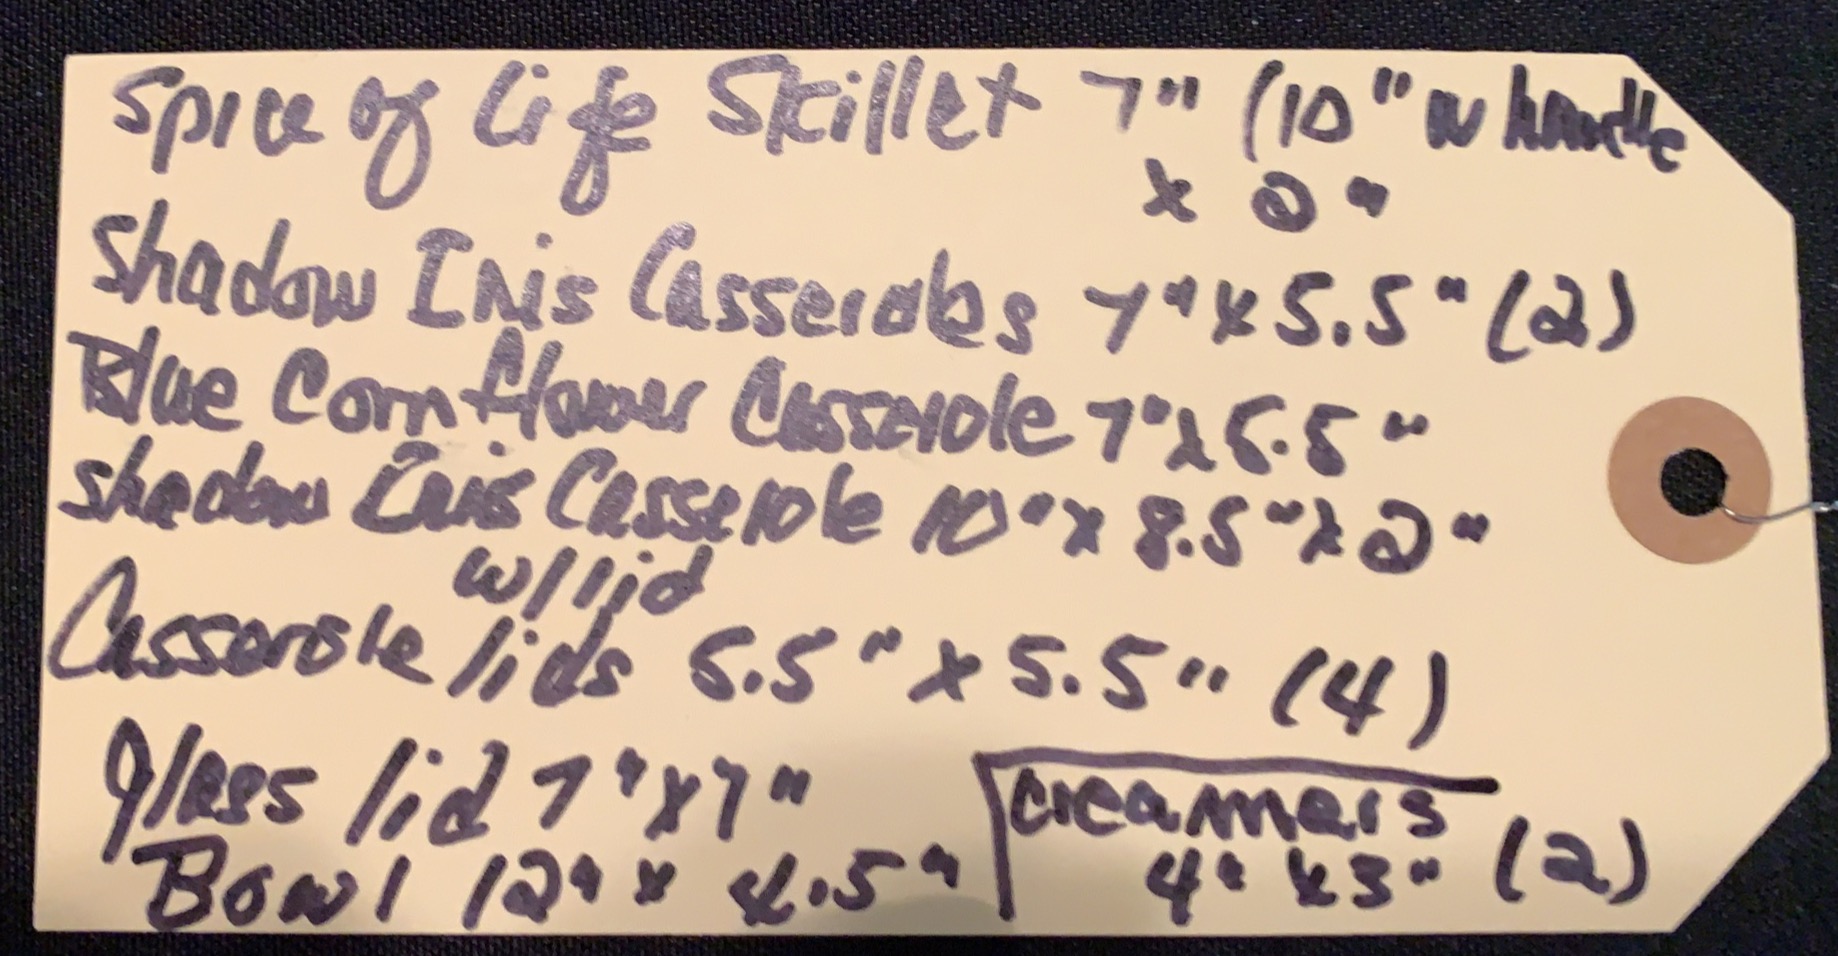 Spice of Life Skillet 7" (10" w handle
x 2"
Shadow Iris Casseroles 7" x 5.5" (2)
Blue Cornflower Casserole 7" x 5.5"
Shadow Iris Casserole 10" x 8.5" x 2"
w/lid
Casserole lids 5.5" x 5.5" (4)
Glass lid 7" x 7"
Bowl 12" x 4.5"
Creamers
4" x 3" (2)